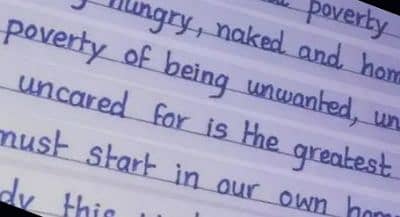 poverty
hungry, naked and hom
poverty of being unwanted, un
uncared for is the greatest
must start in our own hom
dy this